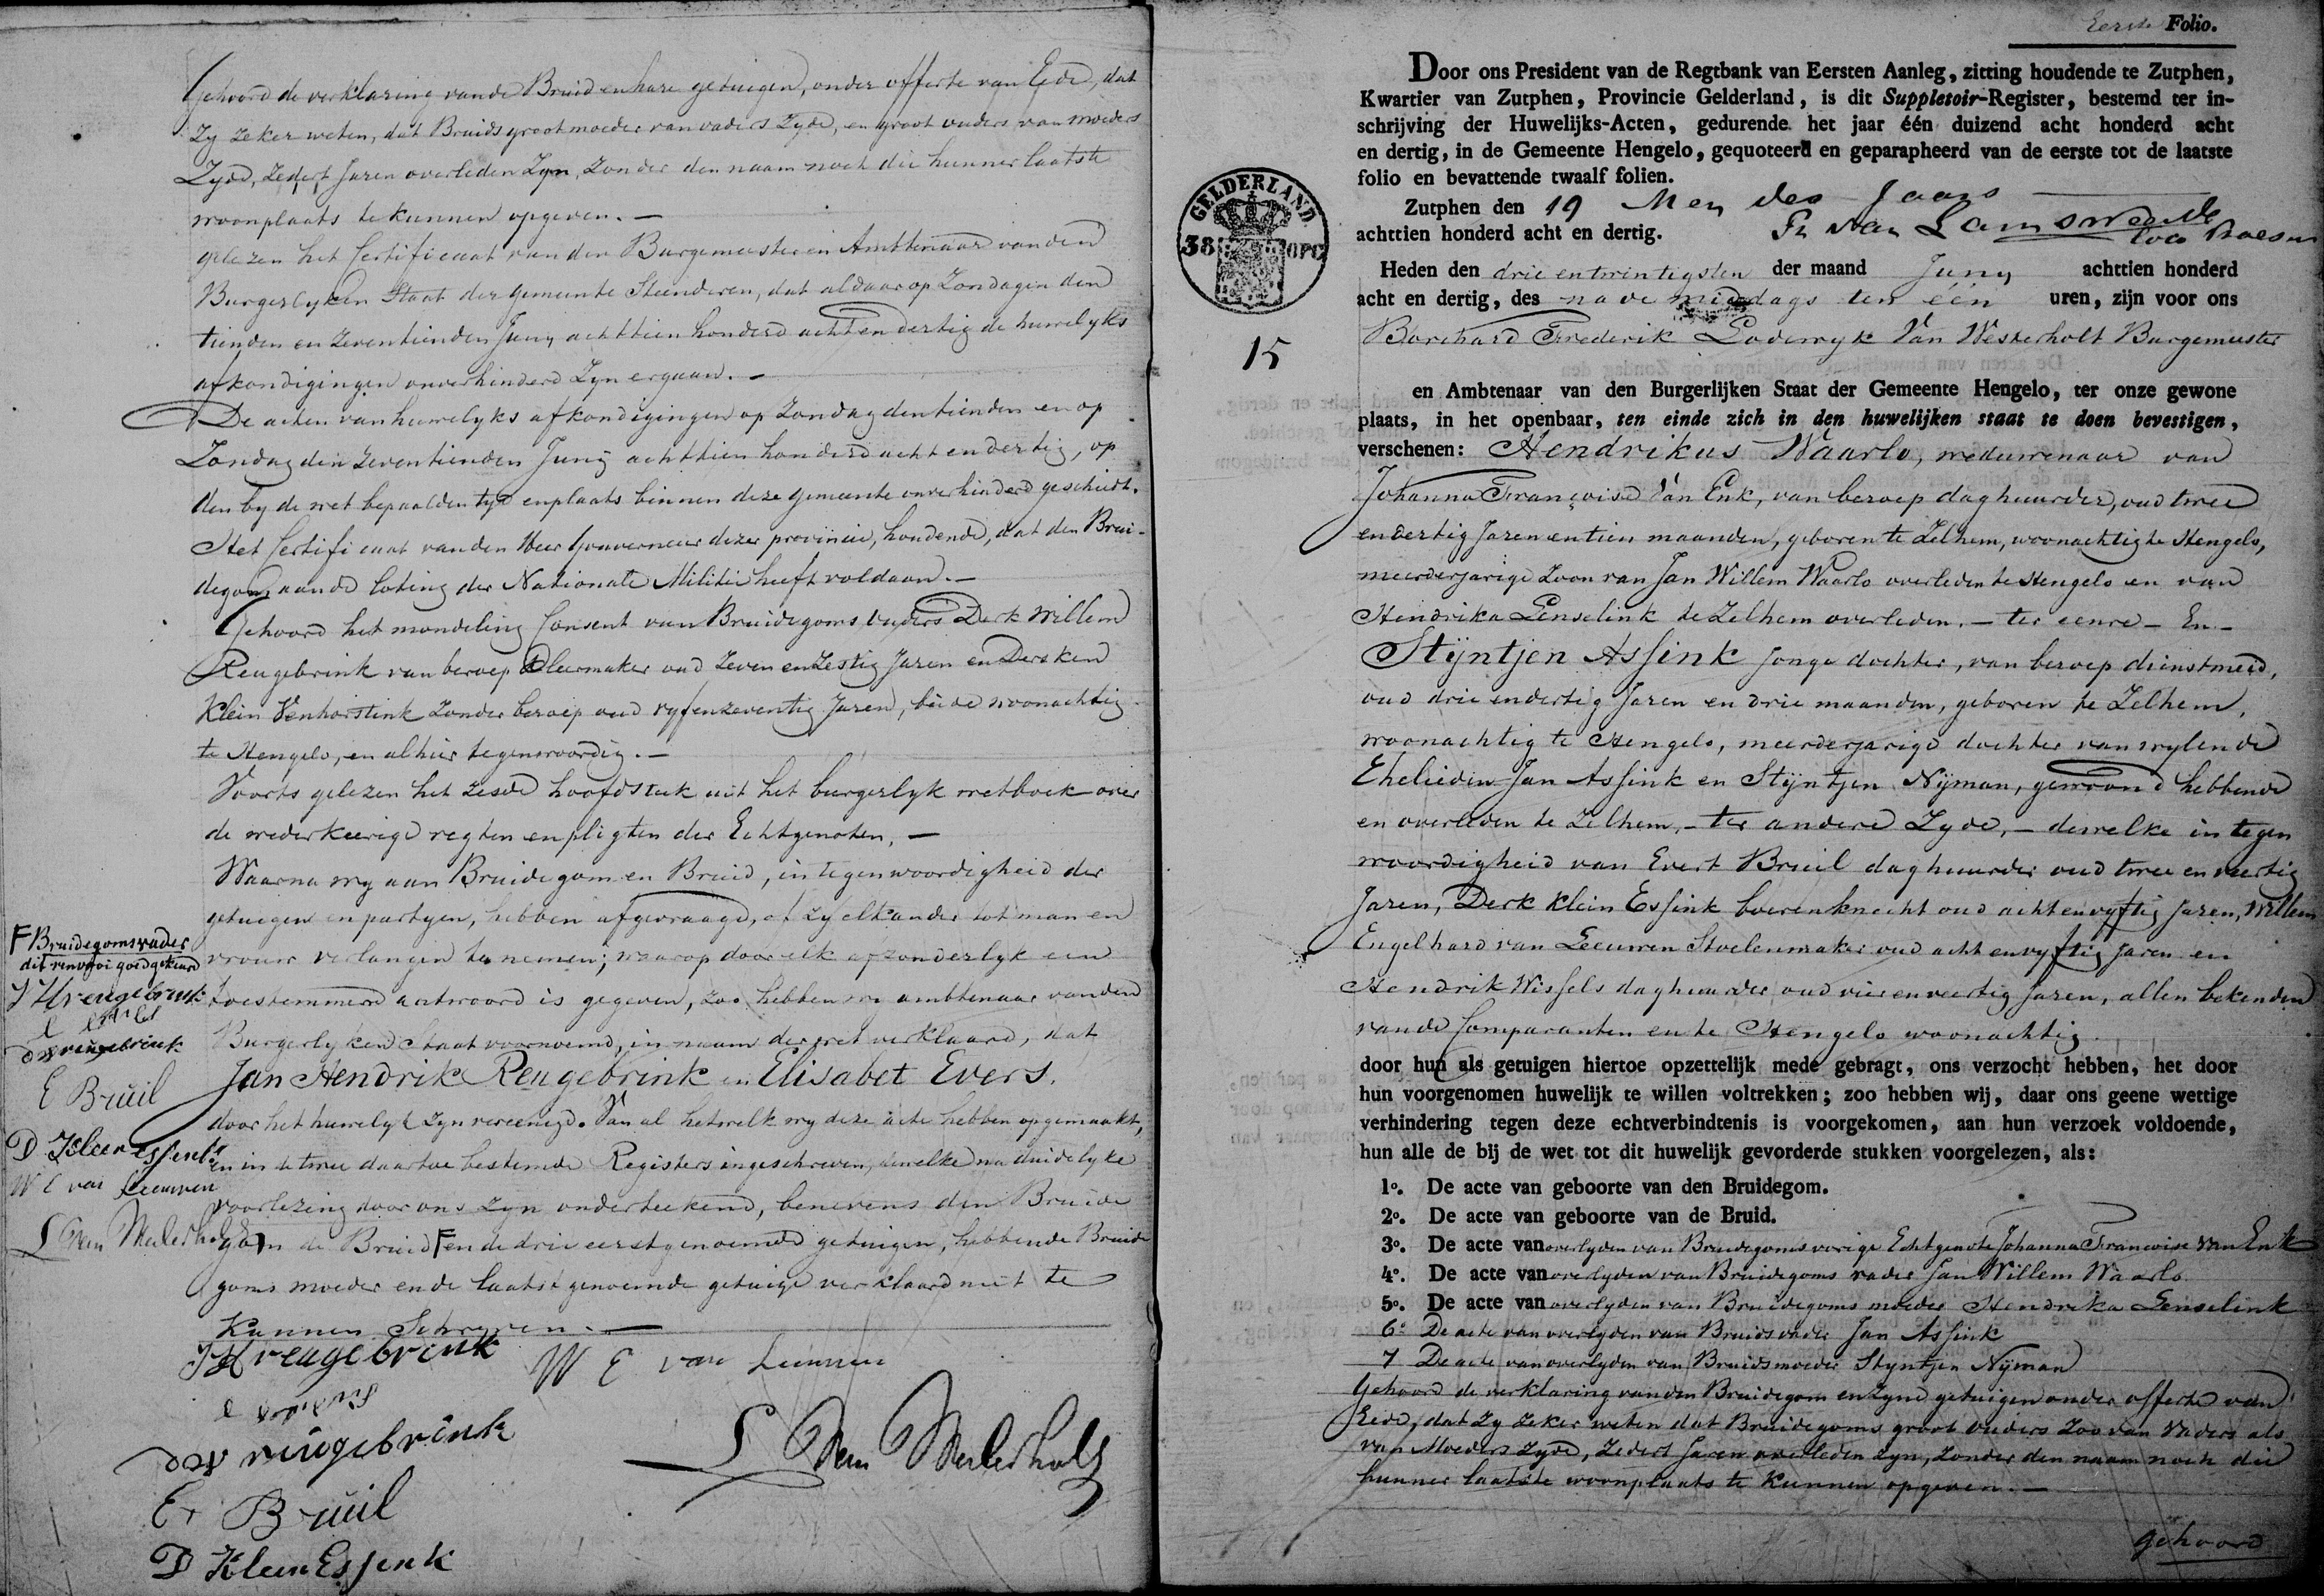 Gehoord de verklaring van de Bruid en hare getuigen, onder offerte van Eede, dat
Zy zeker weten, dat Bruids grootmoeder van vaders Zyde, en groot ouders van moeders
Zyde, Zedert Jaren overleden Zyn, Zonder den naam noch die hunner laatste
woonplaats te kunnen opgeven. —
gelezen het Certificaat van den Burgemeester en Ambtenaar van den
Burgerlyken Staat der gemeente Steenderen, dat aldaar op Zondagen den
tienden en Zeventienden Juny achttien honderd acht en dertig de huwelyks
afkondigingen onverhinderd Zyn ergaan. —
De acten van huwelyks afkondigingen op Zondag den tienden en op
Zondag den Zeventienden Juny achttien honderd acht en dertig, op
den by de wet bepaalden tyd en plaats binnen deze gemeente onverhinderd geschiedt.
Het Certificaat van den Heer Gouverneur dezer provincie, houdende, dat den Brui-
degom aan de loting der Nationale Militie heeft voldaan. —
Gehoord het mondeling Consent van Bruidegoms ouders Derk Willem
Reugebrink van beroep kleermaker oud Zeven en Zestig Jaren en Dersken
Klein Venhorstink Zonder beroep oud vyf en zeventig Jaren, beide woonachtig
te Hengelo, en alhier tegenwoordig. —
Voorts gelezen het Zesde hoofdstuk uit het burgerlyk wetboek over
de wederkeerige regten en pligten der Echtgenoten, —
Waarna wy aan Bruidegom en Bruid, in tegenwoordigheid der
getuigen en partyen, hebben afgevraagd, of Zy elkander tot man en
vrouw verlangen te nemen; waarop door elk afzonderlyk een
toestemmend antwoord is gegeven, Zoo hebben wy ambtenaar van den
Burgerlyken Staat voornoemd, in naam der wet verklaard, dat
Jan Hendrik Reugebrink en Elisabet Evers.
door het huwelyk Zyn vereenigd. Van al hetwelk wy deze acte hebben opgemaakt,
en in de twee daartoe bestemde Registers ingeschreven, dewelke na duidelyke
voorlezing door ons Zyn onderteekend, benevens den Bruide
gom de Bruid F en de drie eerstgenoemde getuigen, hebbende Bruide
goms moeder en de laatst genoemde getuige verklaard niet te
Kunnen Schryven. —
F Bruidegoms vader
dit renvooi goedgekeurd
J H reugebrink
d w reugebrink
E Bruil
D Kleen Essink
W E van Leeuwen
J H reugebrink
W E van Leeuwen
d w reugebrink
E Bruil
D Kleen Essink
Eerste Folio.
Door ons President van de Regtbank van Eersten Aanleg, zitting houdende te Zutphen,
Kwartier van Zutphen, Provincie Gelderland, is dit Suppletoir-Register, bestemd ter in-
schrijving der Huwelijks-Acten, gedurende het jaar één duizend acht honderd acht
en dertig, in de Gemeente Hengelo, gequoteerd en geparapheerd van de eerste tot de laatste
folio en bevattende twaalf folien.
Zutphen den 19 Mey des Jaars
achttien honderd acht en dertig.
GELDERLAND
38 OPC
15
Heden den drie en twintigsten der maand Juny achttien honderd
acht en dertig, des na de middags ten één uren, zijn voor ons
Borchard Frederik Lodewyk Van Westerholt Burgemeester
en Ambtenaar van den Burgerlijken Staat der Gemeente Hengelo, ter onze gewone
plaats, in het openbaar, ten einde zich in den huwelijken staat te doen bevestigen,
verschenen: Hendrikus Waarlo, weduwenaar van
Johanna Françoise Van Enk, van beroep daghuurder, oud twee
en dertig Jaren en tien maanden, geboren te Zelhem, woonachtig te Hengelo,
meerderjarige Zoon van Jan Willem Waarlo overleden te Hengelo en van
Hendrika Lenselink te Zelhem overleden. — ter eenre — En —
Stijntjen Assink Jonge dochter, van beroep dienstmeid,
oud drie en dertig Jaren en drie maanden, geboren te Zelhem,
woonachtig te Hengelo, meerderjarige dochter van wylen de
Ehelieden Jan Assink en Stijntjen Nijman, gewoond hebbende
en overleden te Zelhem, — ter andere Zyde, — dewelke in tegen
woordigheid van Evert Bruil daghuurder oud twee en veertig
Jaren, Derk Klein Essink boerenknecht oud acht en vyftig Jaren, Willem
Engelhard van Leeuwen Stoelenmaker oud acht en vyftig Jaren en
Hendrik Wissels daghuurder oud vier en veertig Jaren, allen bekenden
van de Comparanten en te Hengelo woonachtig
door hun als getuigen hiertoe opzettelijk mede gebragt, ons verzocht hebben, het door
hun voorgenomen huwelijk te willen voltrekken; zoo hebben wij, daar ons geene wettige
verhindering tegen deze echtverbindtenis is voorgekomen, aan hun verzoek voldoende,
hun alle de bij de wet tot dit huwelijk gevorderde stukken voorgelezen, als:
1o. De acte van geboorte van den Bruidegom.
2o. De acte van geboorte van de Bruid.
3o. De acte van overlyden van Bruidegoms vorige Echtgenote Johanna Francoise Van Enk
4o. De acte van overlyden van Bruidegoms vader Jan Willem Waarlo
5o. De acte van overlyden van Bruidegoms moeder Hendrika Lenselink
6o De acte van overlyden van Bruids vader Jan Assink
7 De acte van overlyden van Bruids moeder Styntjen Nijman
Gehoord de verklaring van den Bruidegom en Zyne getuigen onder offerte van
Eede, dat Zy Zeker weten dat Bruidegoms groot ouders Zoo van Vaders als
van Moeders Zyde, Zedert Jaren overleden Zyn, Zonder den naam noch die
hunner laatste woonplaats te kunnen opgeven. —
gehoord